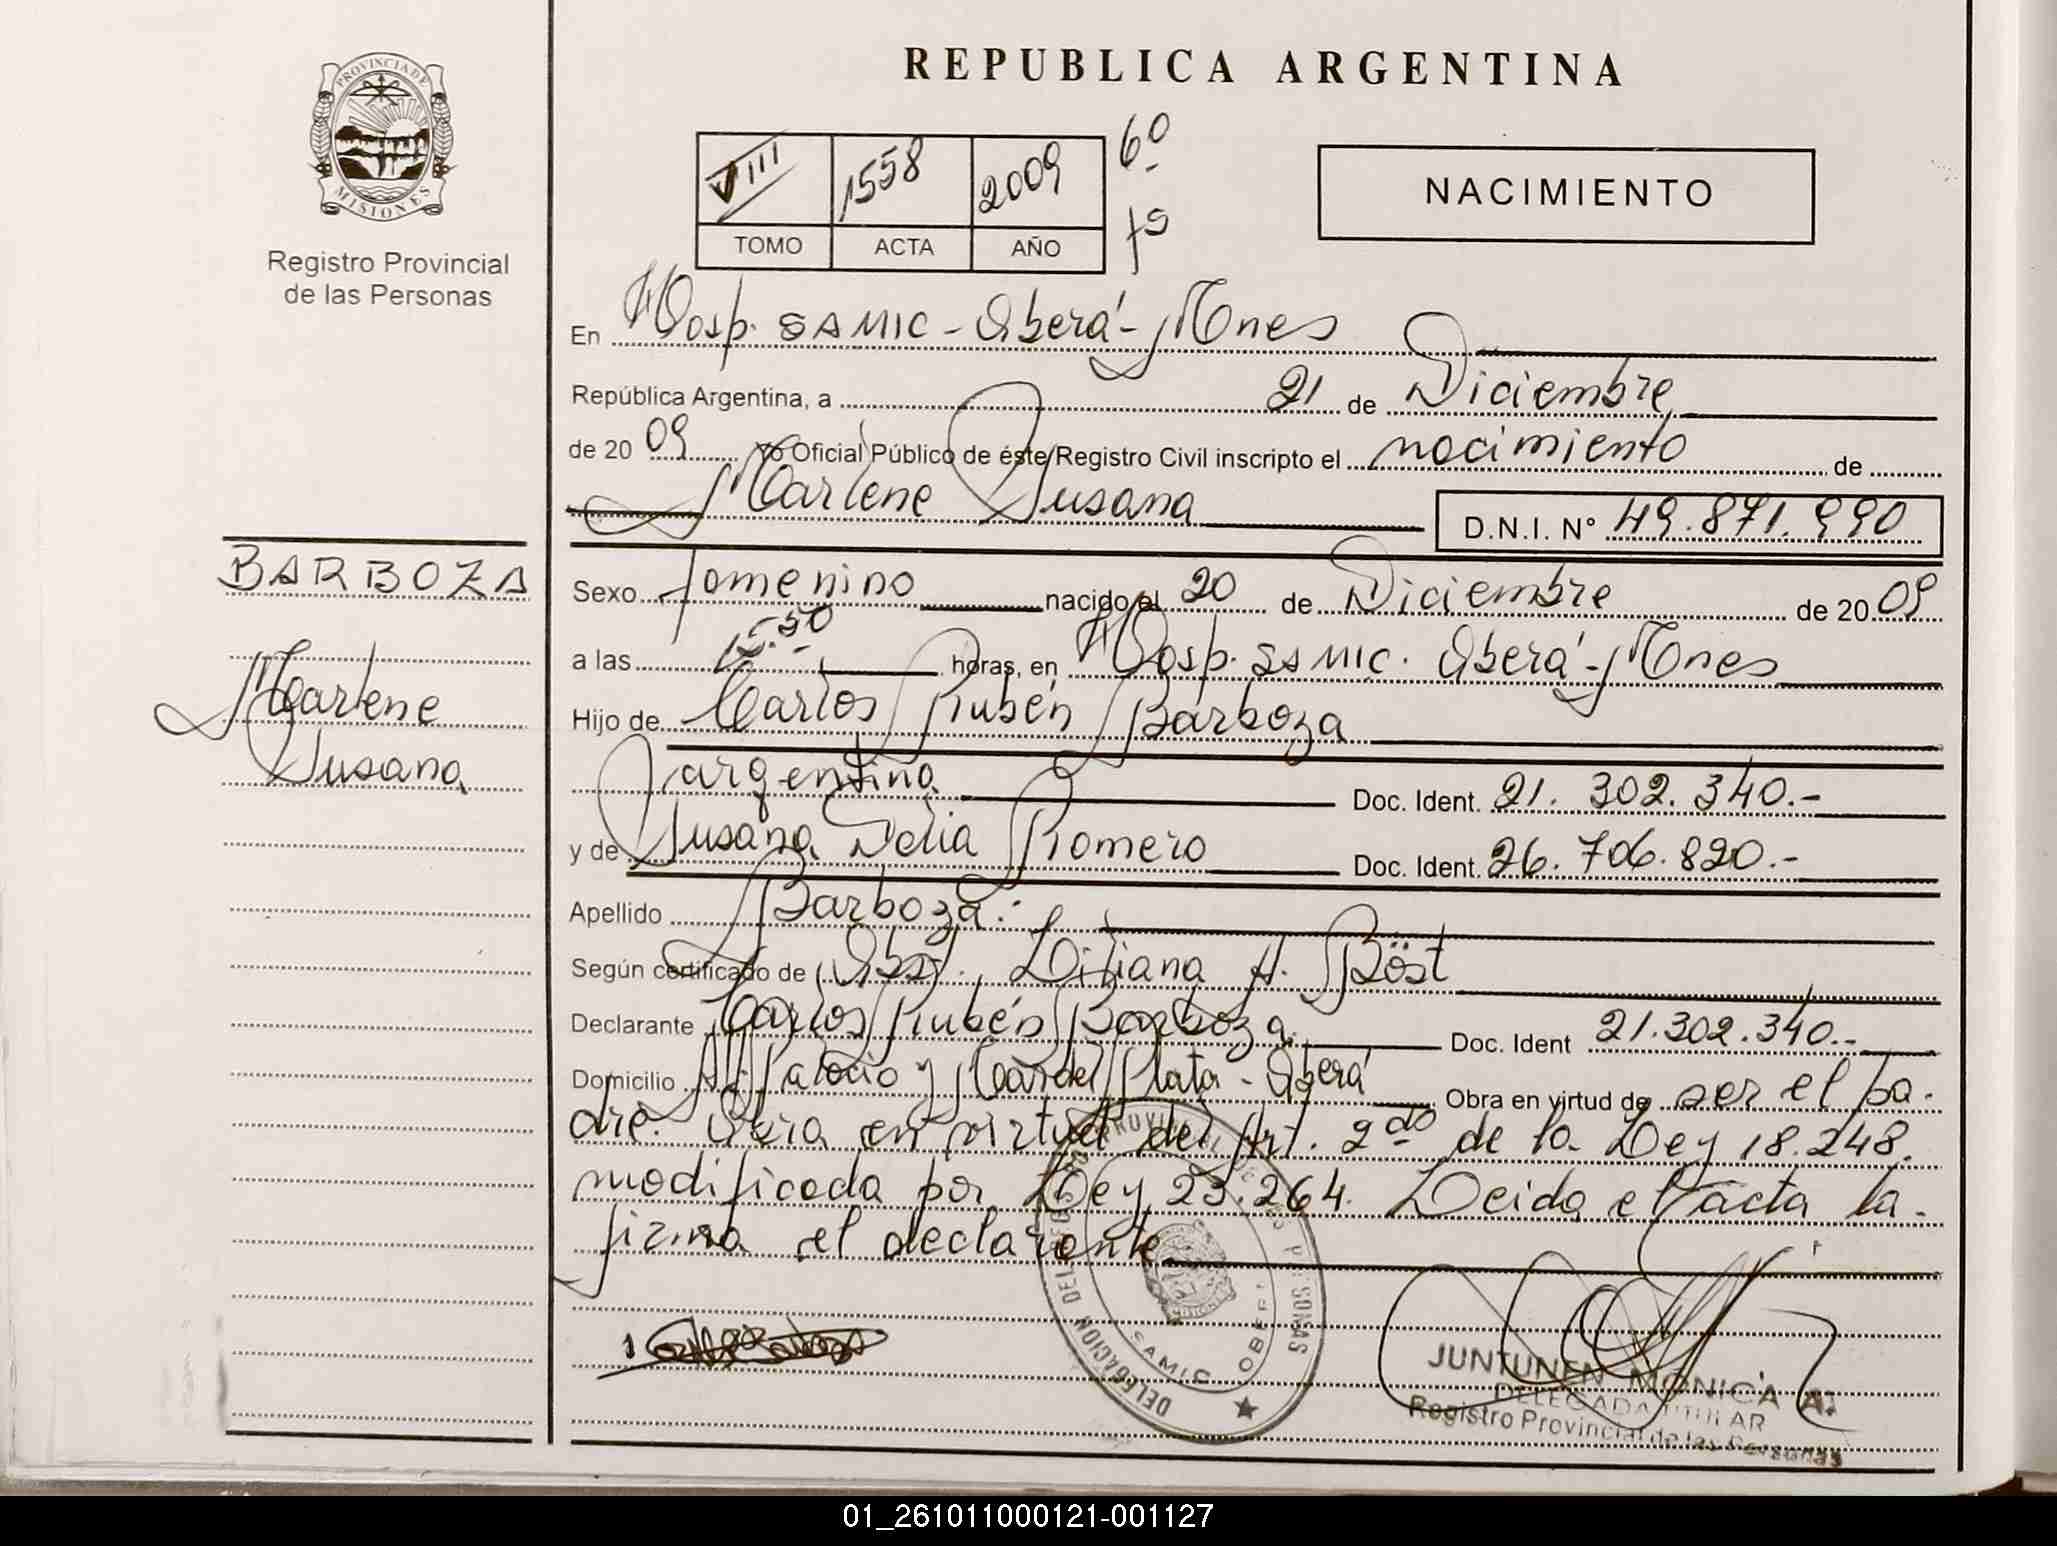 PROVINCIA DE
MISIONES
Registro Provincial
de las Personas
REPUBLICA ARGENTINA
VIII 1558 2009 6º
TOMO ACTA AÑO fs
NACIMIENTO
En Hosp. SAMIC - Oberá - Mnes
República Argentina, a 21 de Diciembre
de 20 09 Yo Oficial Público de éste Registro Civil inscripto el nacimiento de
Marlene Susana D.N.I. Nº 49.871.990
BARBOZA
Marlene
Susana
Sexo femenino nacido el 20 de Diciembre de 20 09
a las 15.50 horas, en Hosp. SAMIC. Oberá - Mnes
Hijo de Carlos Rubén Barboza
argentina Doc. Ident. 21. 302. 340.-
y de Susana Delia Romero Doc. Ident. 26. 706. 820.-
Apellido Barboza.-
Según certificado de Obst. Liliana A. Böst
Declarante Carlos Rubén Barboza. Doc. Ident 21.302.340.-
Domicilio y Mar del Plata - Oberá Obra en virtud de ser el pa-
dre. Obra en virtud del Art. 2do de la Ley 18.248.
modificada por Ley 23.264. Leida el acta la
firma el declarante
DELEGACION DEL
SAMIC OBERA
JUNTUNEN MONICA A.
DELEGADA TITULAR
Registro Provincial de las Personas
01_261011000121-001127